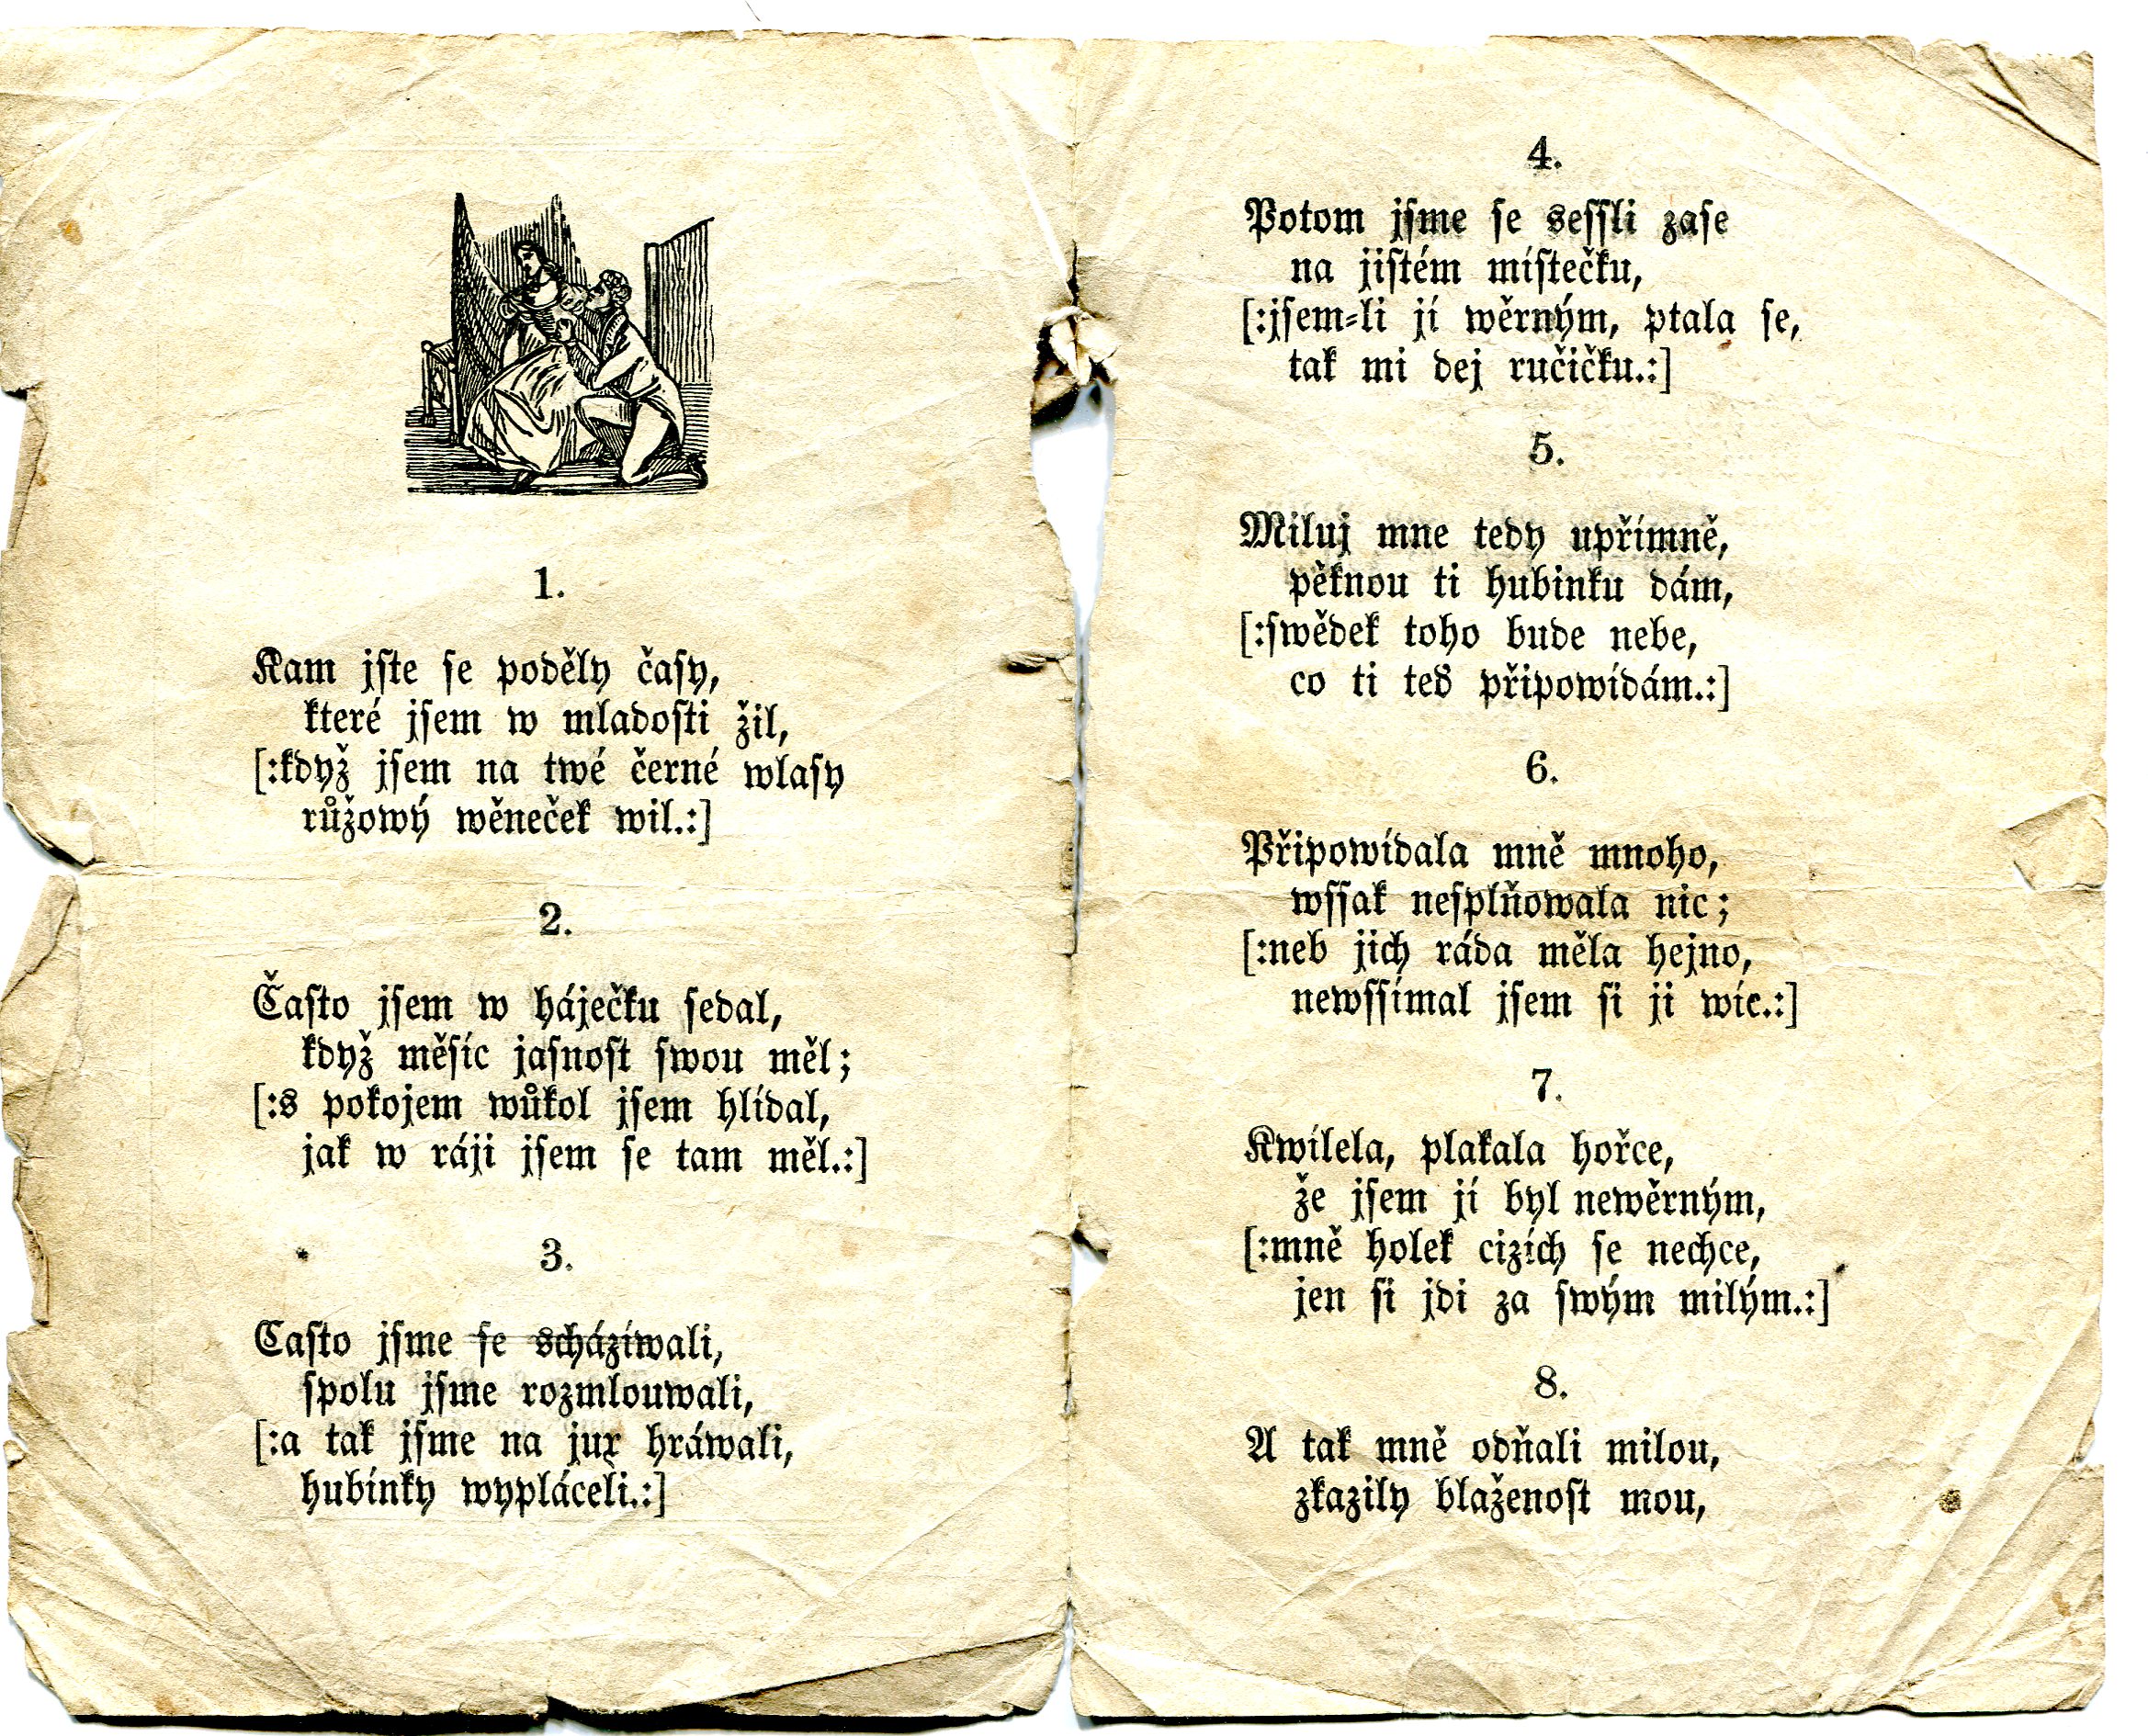 1.
Kam jste se poděly časy,
které jsem w mladosti žil,
[:když jsem na twé černé wlasy
růžowý wěneček wil.:]
2.
Často jsem w háječku sedal,
když měsíc jasnost swou měl;
[:s pokojem wůkol jsem hlídal,
jak w ráji jsem se tam měl.:]
3.
Casto jsme se scházíwali,
spolu jsme rozmlouwali,
[:a tak jsme na jux hráwali,
hubínky wypláceli.:]
4.
Potom jsme se sessli zase
na jistém místečku,
[:jsem-li jí wěrným, ptala se,
tak mi dej ručičku.:]
5.
Miluj mne tedy upřímně,
pěknou ti hubinku dám,
[:swědek toho bude nebe,
co ti teď připowídám.:]
6.
Připowídala mně mnoho,
wssak nesplňowala nic;
[:neb jich ráda měla hejno,
newssímal jsem si ji wíc.:]
7.
Kwílela, plakala hořce,
že jsem jí byl newěrným,
[:mně holek cizích se nechce,
jen si jdi za swým milým.:]
8.
A tak mně odňali milou,
zkazily blaženost mou,